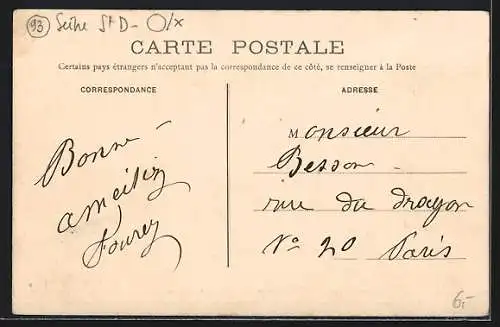 93 Seine St D-
CARTE POSTALE
Certains pays étrangers n'acceptant pas la correspondance de ce côté, se renseigner à la Poste
CORRESPONDANCE
ADRESSE
Bonne
Monsieur
Besson
rue du dragon
No 20 Paris
6,-